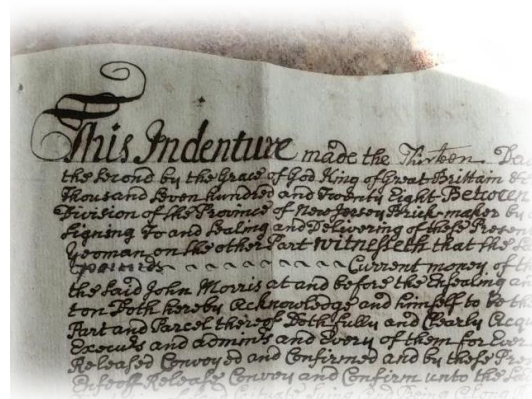 This Indenture made the Thirteen Da
the Second by the Grace of God King of Great Brittain &c
Thousand Seven hundred and Twenty Eight Between
Division of the Province of New Jersey Brick-maker by
Signing To and Sealing and Delivering of these Presen
Yeoman on the other Part Witnesseth that the
pounds Current money of th
the Said John Morris at and before the Ensealing an
ton Doth hereby Acknowledge and himself to be th
Part and Parcel thereof Doth fully and Clearly Acqu
Execurs and adminis and Every of them for Ever
Released Conveyed and Confirmed and by these Pre
Release Convey and Confirm unto the
Situate Lying and Being